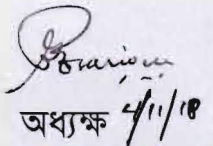 অধ্যক্ষ 4/11/18